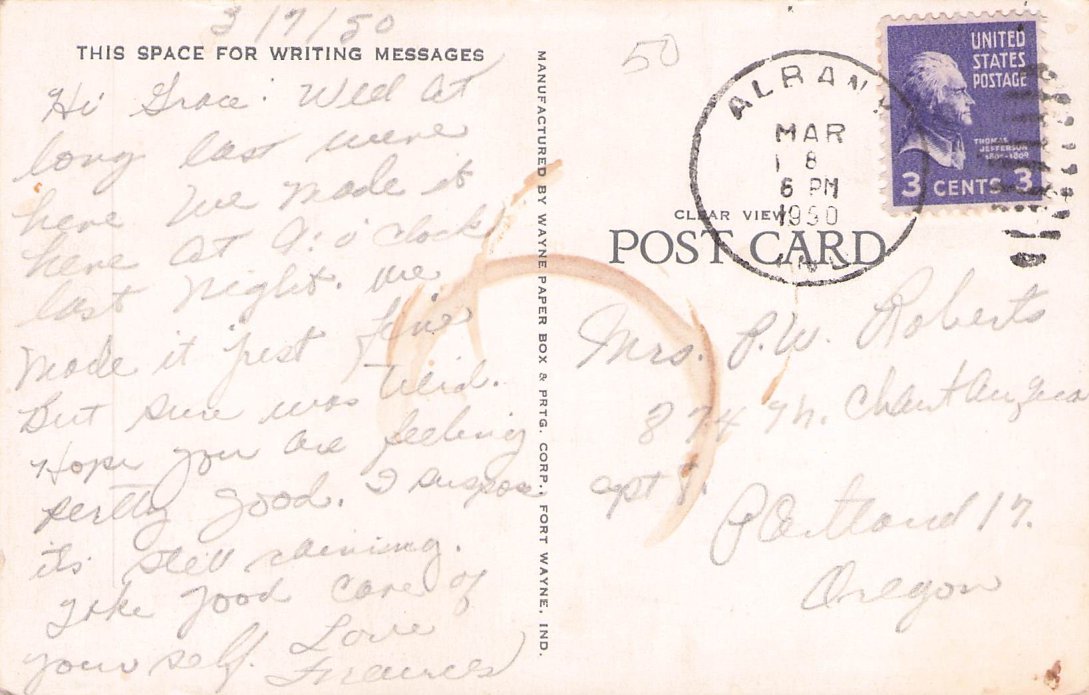 3/7/50
THIS SPACE FOR WRITING MESSAGES
Hi Grace. Well at
long last were
here We made it
here at 9:o'clock
last night. we
made it just fine
But sure was tierd.
Hope you are feeling
pertty good. I suspose
it's still raining.
Take good care of
your self. Love
Frances
MANUFACTURED BY WAYNE PAPER BOX & PRTG. CORP., FORT WAYNE, IND.
50
ALBANY
MAR
8
6 PM
1950
IND
UNITED
STATES
POSTAGE
THOMAS
JEFFERSON
1801-1809
3 CENTS 3
CLEAR VIEW
POST CARD
Mrs. P.W. Roberts
874 N. Chautauqua
apt
Portland 17.
Oregon